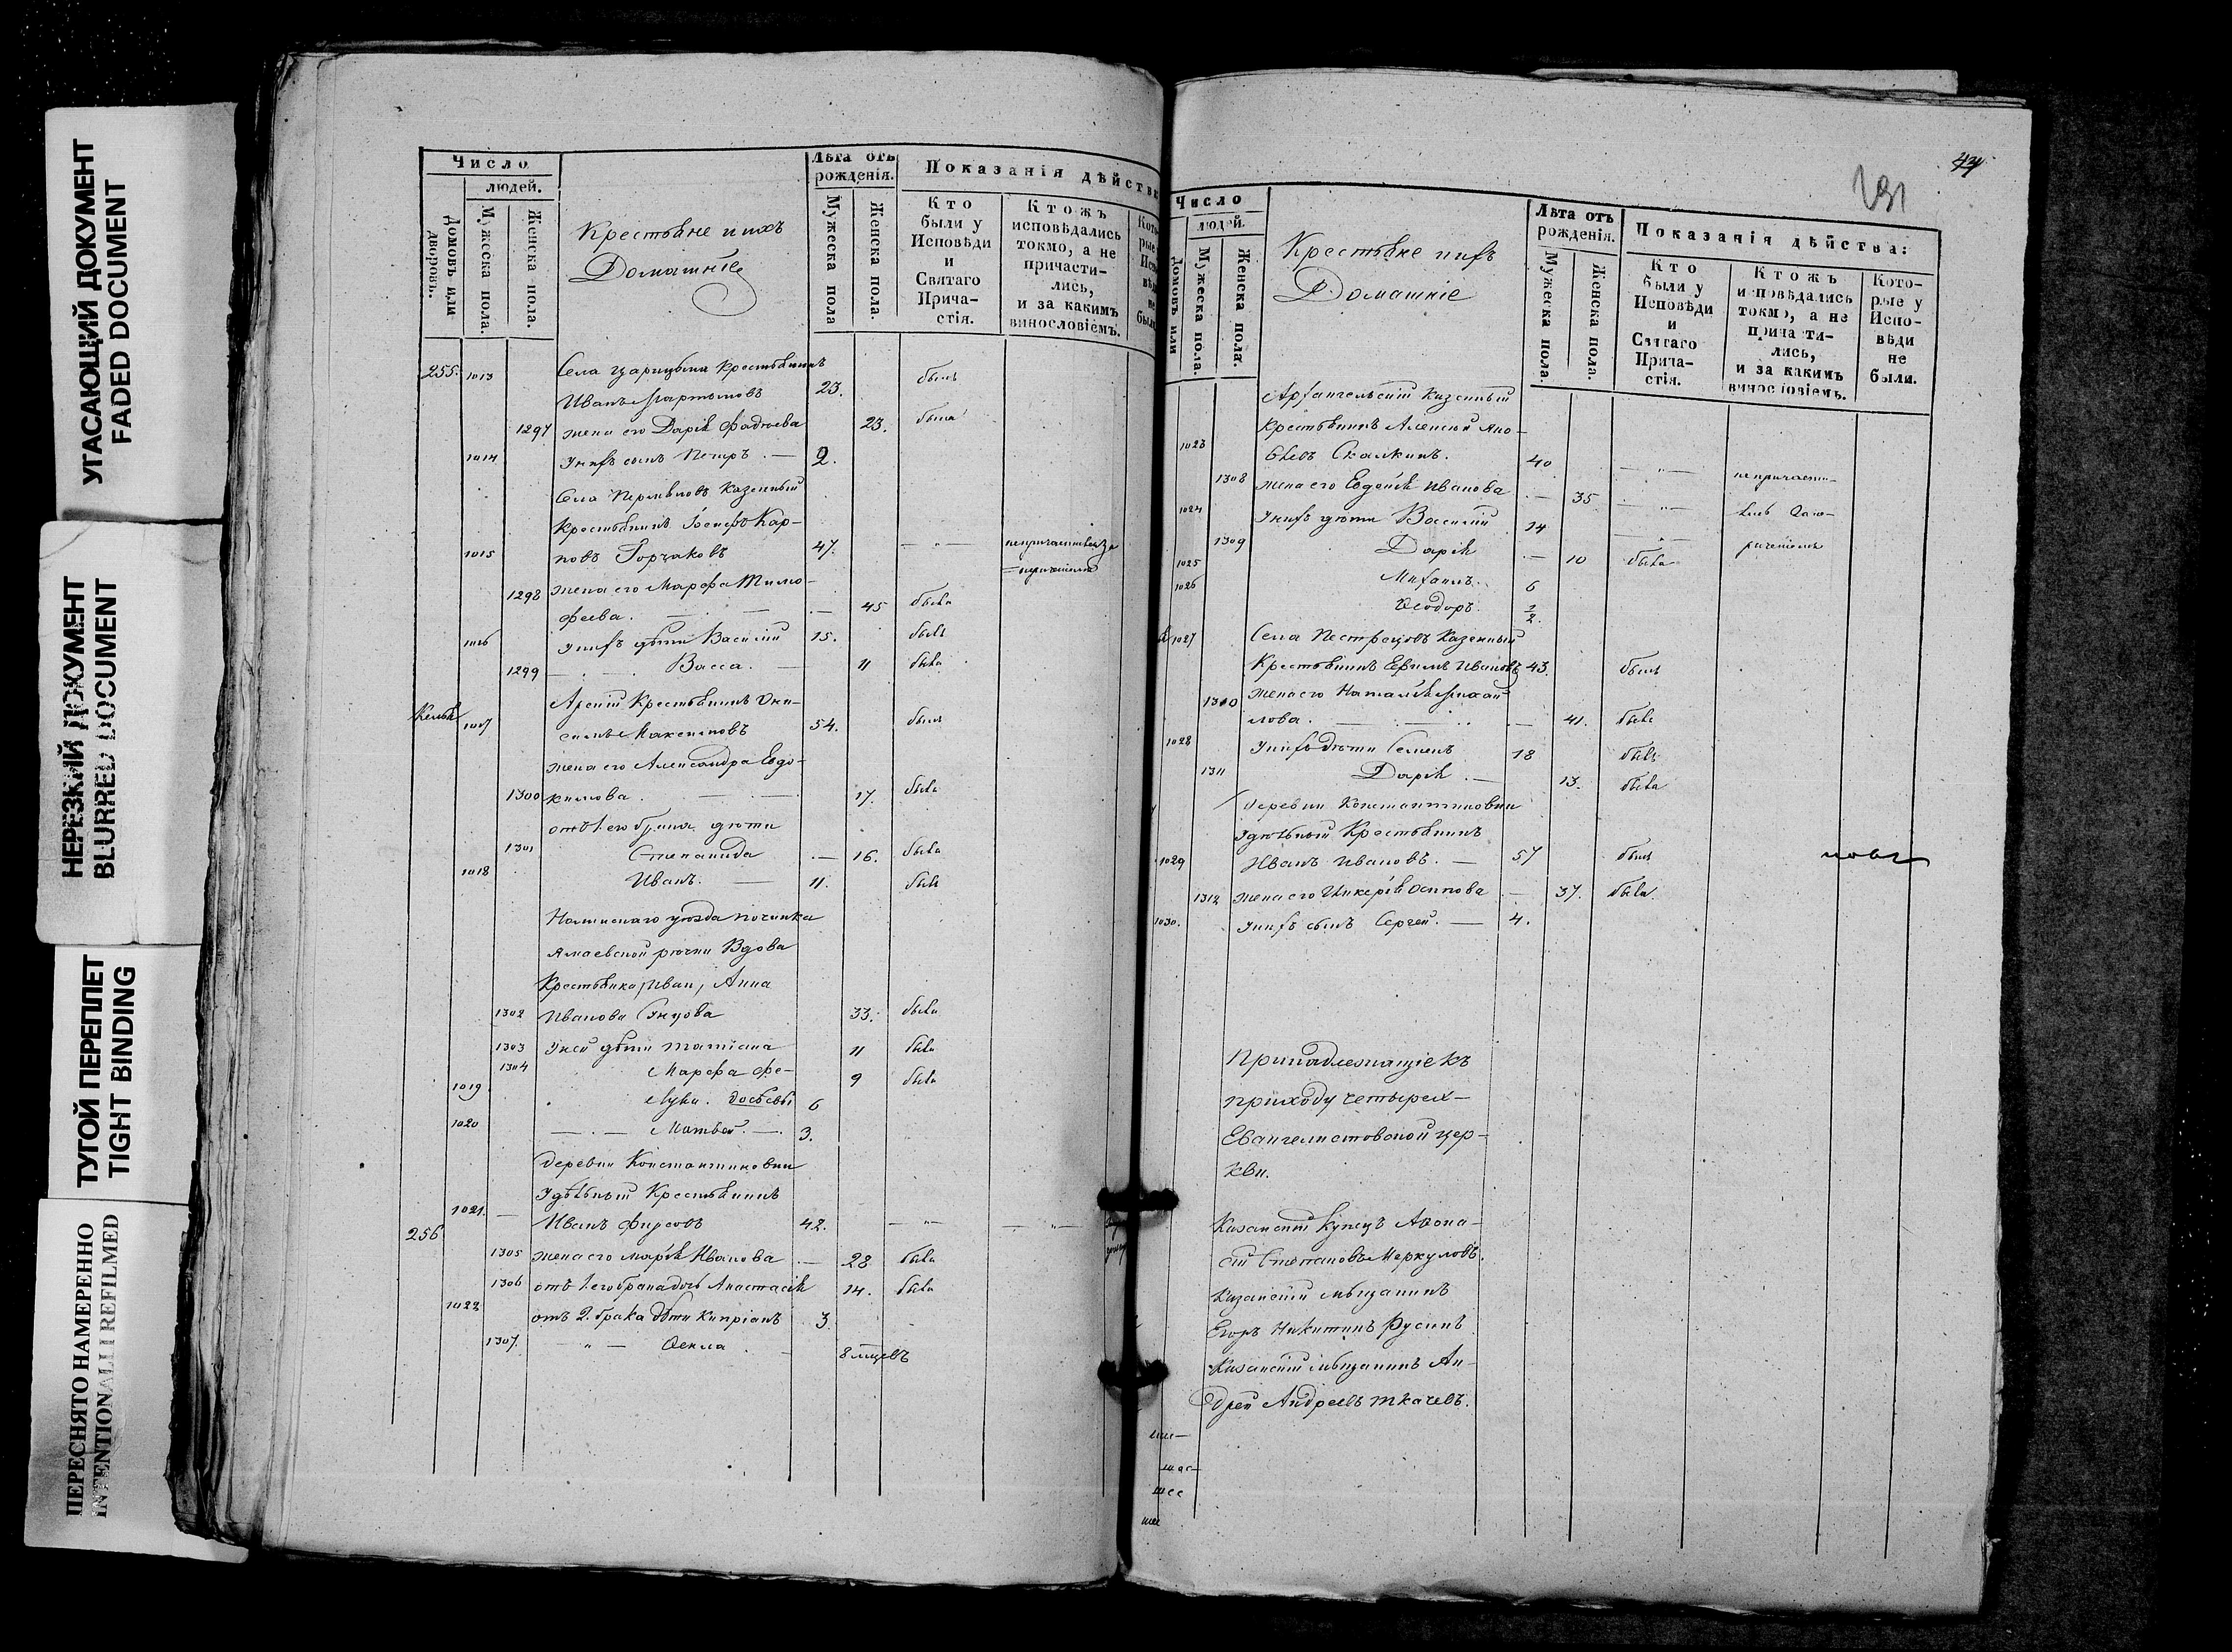 УГАСАЮЩИЙ ДОКУМЕНТ
FADED DOCUMENT
НЕРЕЗКИЙ ДОКУМЕНТ
BLURRED DOCUMENT
ТУГОЙ ПЕРЕПЛЕТ
TIGHT BINDING
ПЕРЕСНЯТО НАМЕРЕННО
INTENTIONALLI REFILMED
Число
людей.
Домовъ или дворовъ.
Мужеска пола.
Женска пола.
Крестьяне и ихъ
Домашніе
Лѣта отъ рожденія.
Мужеска пола
Женска пола.
Показанія дѣйств
Кто были у Исповѣди и Святаго Прича-стія.
Ктожъ исповѣдались токмо, а не причасти-лись, и за какимъ винословіемъ.
255. 1013 Села Царицына крестьянинъ
Иванъ Мартыновъ 23. былъ
1297 жена его Дарія Фадѣева 23. была
1014 У нихъ сынъ Петръ. — 2.
Села казенный
крестьянинъ Іосифъ Кар-
1015 повъ Горчаковъ 47. — " —
1298 жена его Марфа Тимо-
феева. — — 45 была
1016 У нихъ дѣти Василій 15. былъ
1299 — Васса. — 11 была
крестьянинъ
1017 Максимовъ 54. былъ
жена его Александра Евдо-
1300 кимова. — — 17. была
отъ 1. его брака дѣти
1301 Степанида — 16. была
1018 Иванъ. — 11. былъ
уѣзда починка
рѣчки Вдова
Крестьянка Анна
1302 Иванова 33. была
1303 У ней дѣти Татіана 11 была
1304 Марфа 9 была
1019 Лука. 6
1020 — Матвей. — 3.
Деревни Константиновки
Удѣльный Крестьянинъ
256 1021. — Иванъ Фирсовъ 42. — " —
1305 жена его Марія Иванова — 28 была
1306 отъ 1. его брака дочь Анастасія 14. была
1022 отъ 2. брака дѣти Кипріанъ 3.
1307. — " — Ѳекла — 8 мцевъ
44
191
Число
людей.
Домовъ или
Мужеска пола.
Женска пола.
Крестьяне и ихъ
Домашніе
Лѣта отъ рожденія.
Мужеска пола.
Женска пола.
Показанія дѣйства:
Кто были у Исповѣди и Святаго Прича-стія.
Ктожъ исповѣдались токмо, а не причасти-лись, и за какимъ винословіемъ.
Кото-рые у Испо-вѣди не были.
Архангельскій казенный
крестьянинъ Алексей
1023 Скалкинъ. 40 — " —
1308 жена его Евдокія Иванова — 35 — " —
1024 У нихъ дѣти Василій 14
1309 Дарія — 10 была
1025 Михаилъ. 6
1026 Ѳеодоръ. 1/2.
1027 Села Пестрецовъ Казенный
Крестьянинъ Ефимъ Ивановъ 43. былъ
1310 жена его Наталія Михай-
лова. — — 41. была
1028 У нихъ дѣти Семенъ 18 былъ
1311 Дарія. — 13. была
Деревни Константиновки
Удѣльный Крестьянинъ
1029 Иванъ Ивановъ. — 57 былъ
1312 жена его Гликерія Осипова — 37. была.
1030. У нихъ сынъ Сергей. — 4.
Принадлежащіе къ
приходу четырех-
Евангелистовской цер-
кви.
Казанскій купецъ Аѳона-
сій Степановъ Меркуловъ.
Казанскій мѣщанинъ
Егоръ Никитинъ Русинъ
Казанскій мѣщанинъ Ан-
дрей Андреевъ Ткачевъ.